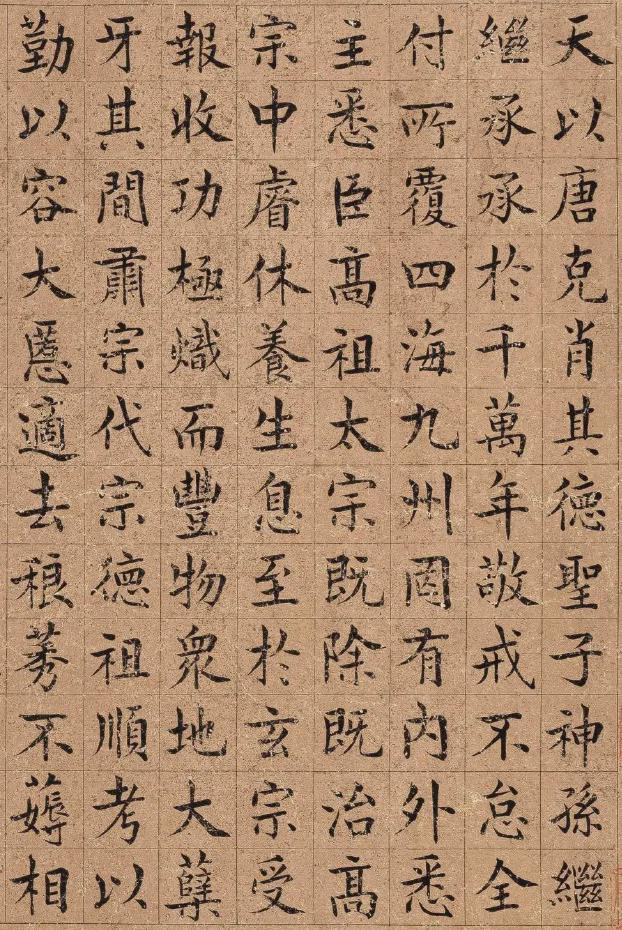 天以唐克肖其德聖子神孫繼
繼承承於千萬年敬戒不怠全
付所覆四海九州罔有內外悉
主悉臣髙祖太宗既除既治髙
宗中睿休養生息至於玄宗受
報收功極熾而豐物衆地大孽
牙其間肅宗代宗德祖順考以
勤以容大慝適去稂莠不薅相